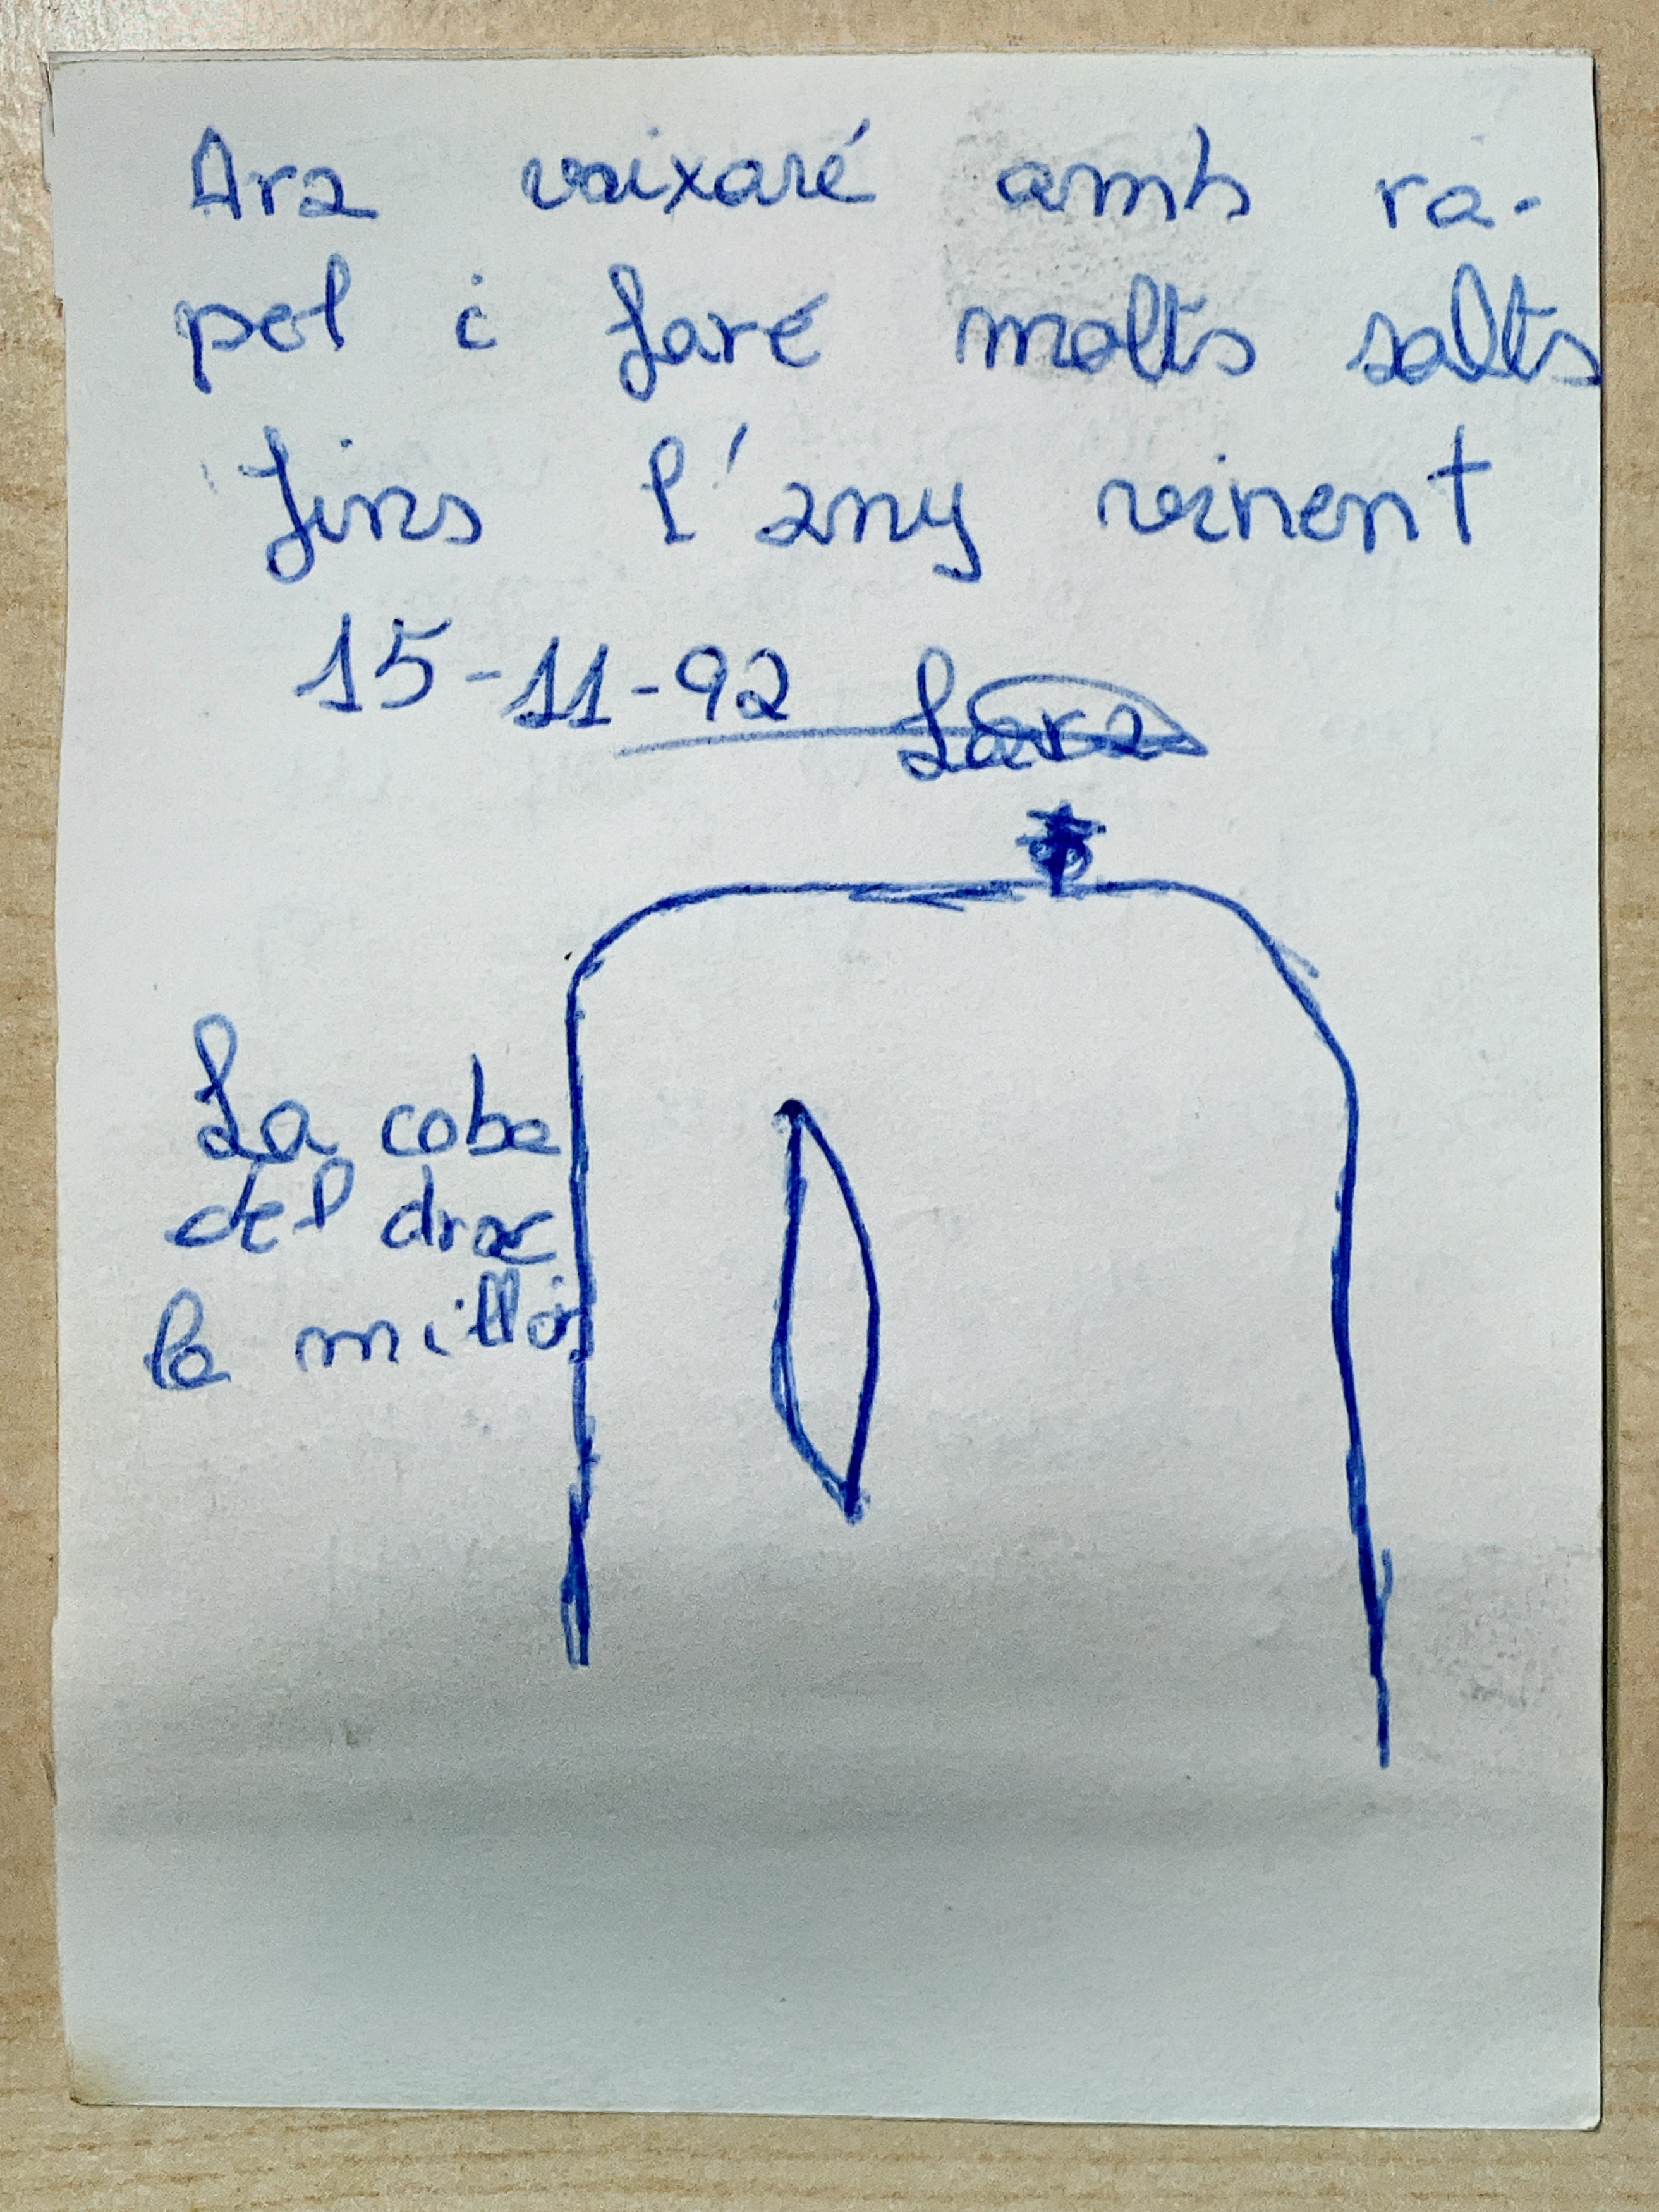 Ara vaixaré amb ra-
pel i faré molts salts
fins l'any vinent
15-11-92 Lara
La coba
del drac
la millor